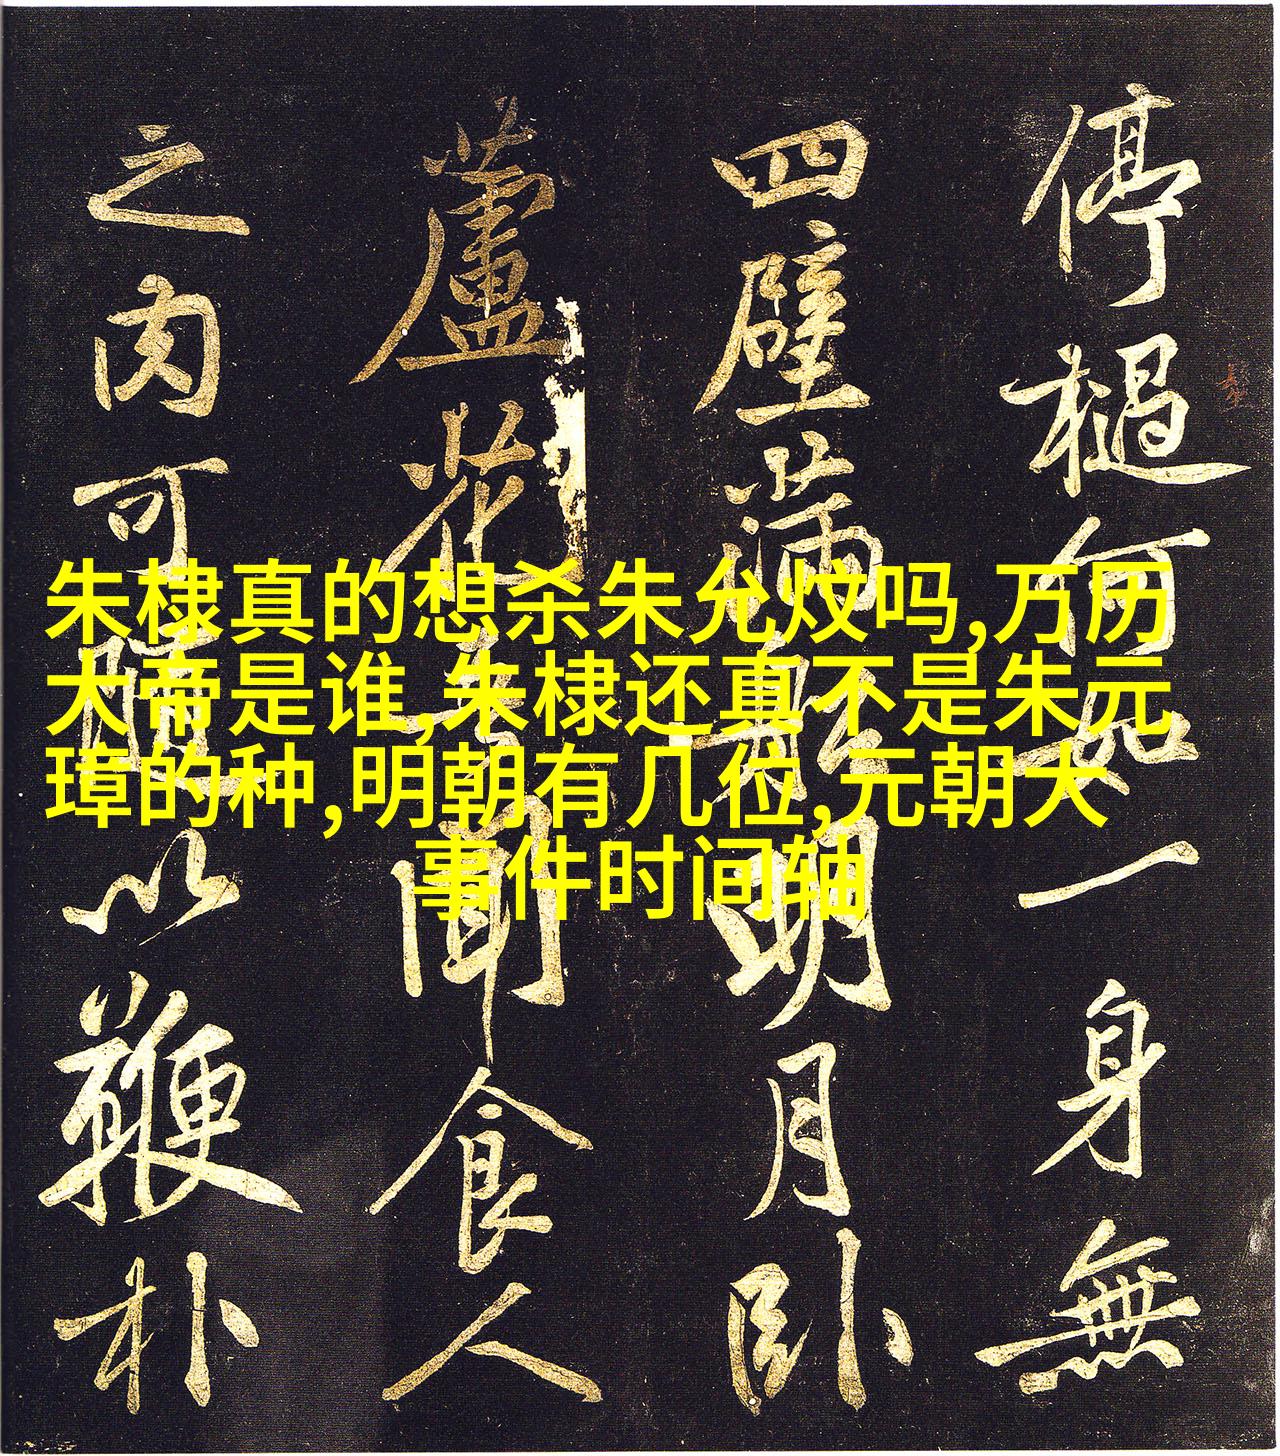 停檛何如一身無
四壁滿明月卧
蘆花聞食人
之肉可隨以鞭朴
朱棣真的想杀朱允炆吗,万历
大帝是谁,朱棣还真不是朱元
璋的种,明朝有几位,元朝大
事件时间轴